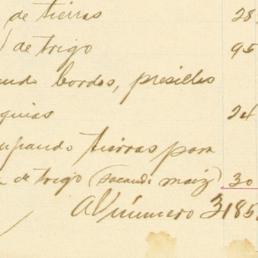 de tierras 28
) de trigo 95
ando bordos, presillas
quias 24
upando tierras para
de trigo (sacando maiz) 30
Al número 3 185